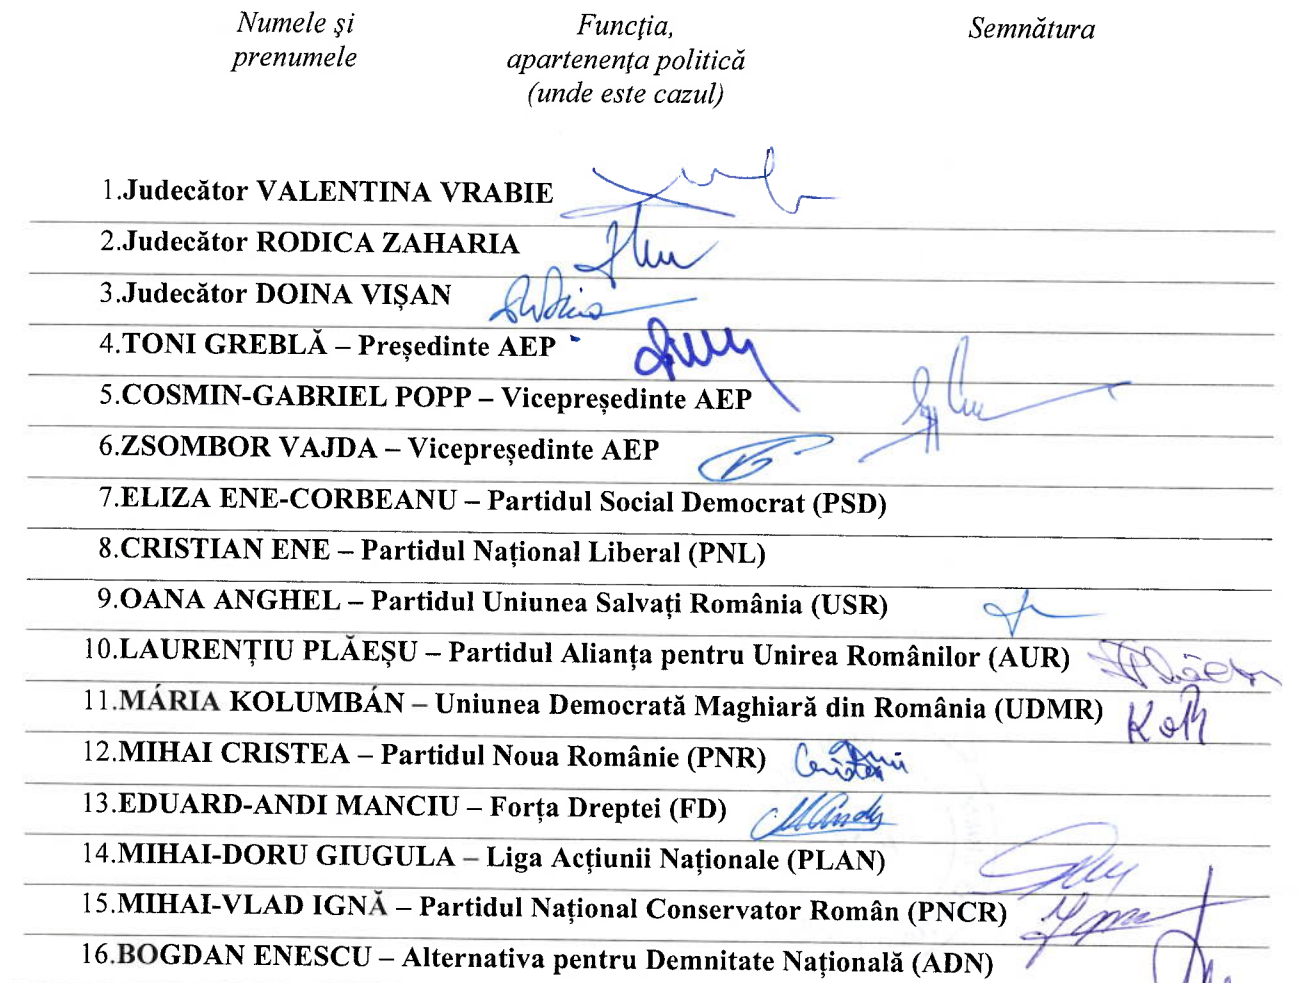 Numele și Funcția, Semnătura
prenumele apartenența politică
(unde este cazul)
1.Judecător VALENTINA VRABIE
2.Judecător RODICA ZAHARIA
3.Judecător DOINA VIȘAN
4.TONI GREBLĂ – Președinte AEP
5.COSMIN-GABRIEL POPP – Vicepreședinte AEP
6.ZSOMBOR VAJDA – Vicepreședinte AEP
7.ELIZA ENE-CORBEANU – Partidul Social Democrat (PSD)
8.CRISTIAN ENE – Partidul Național Liberal (PNL)
9.OANA ANGHEL – Partidul Uniunea Salvați România (USR)
10.LAURENȚIU PLĂEȘU – Partidul Alianța pentru Unirea Românilor (AUR)
11.MÁRIA KOLUMBÁN – Uniunea Democrată Maghiară din România (UDMR)
12.MIHAI CRISTEA – Partidul Noua Românie (PNR)
13.EDUARD-ANDI MANCIU – Forța Dreptei (FD)
14.MIHAI-DORU GIUGULA – Liga Acțiunii Naționale (PLAN)
15.MIHAI-VLAD IGNĂ – Partidul Național Conservator Român (PNCR)
16.BOGDAN ENESCU – Alternativa pentru Demnitate Națională (ADN)